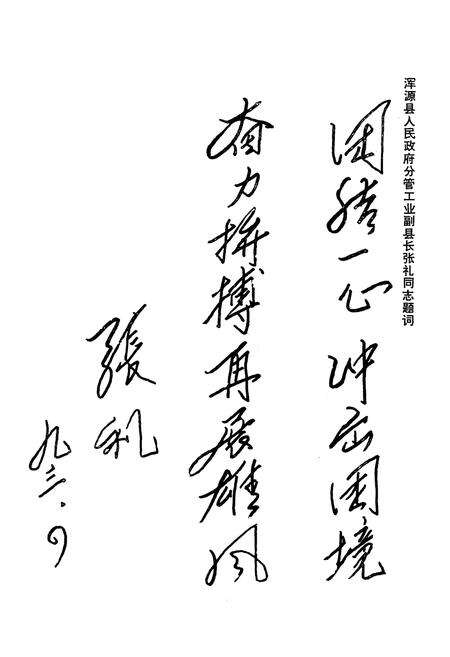 浑源县人民政府分管工业副县长张礼同志题词
团结一心冲出困境
奋力拼搏再展雄风
張礼
九三.9